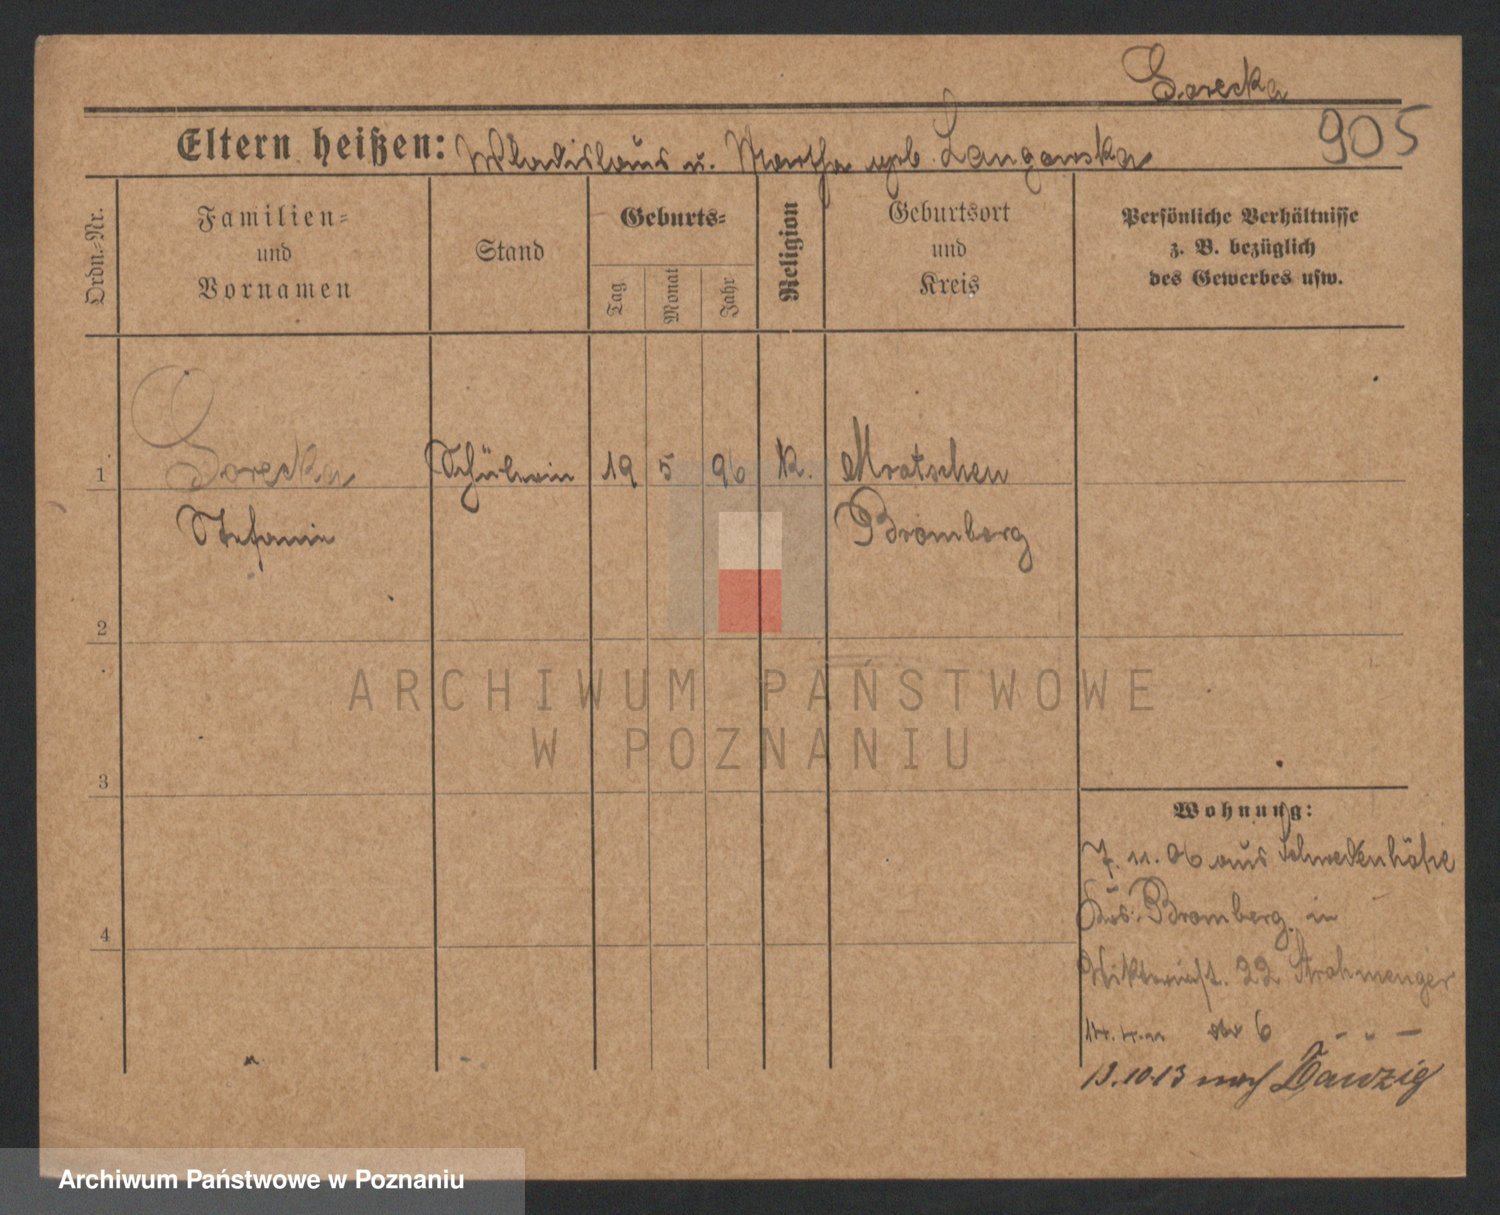 Gorecka
905
Eltern heißen: Wladislaus u. Martha geb. Langowska
Ordn.-Nr.
Familien-
und
Vornamen
Stand
Geburts-
Tag
Monat
Jahr
Religion
Geburtsort
und
Kreis
Persönliche Verhältnisse
z. B. bezüglich
des Gewerbes usw.
1
Gorecka
Schülerin
19
5
96
K.
Mrotschen
Stefanie
Bromberg
2
3
4
Wohnung:
7. 11. 06 aus Schwedenhöhe
Bromberg in
Viktoriast. 22 Strohmenger
6 - " -
13.10.13 nach Danzig
ARCHIWUM PAŃSTWOWE
W POZNANIU
Archiwum Państwowe w Poznaniu